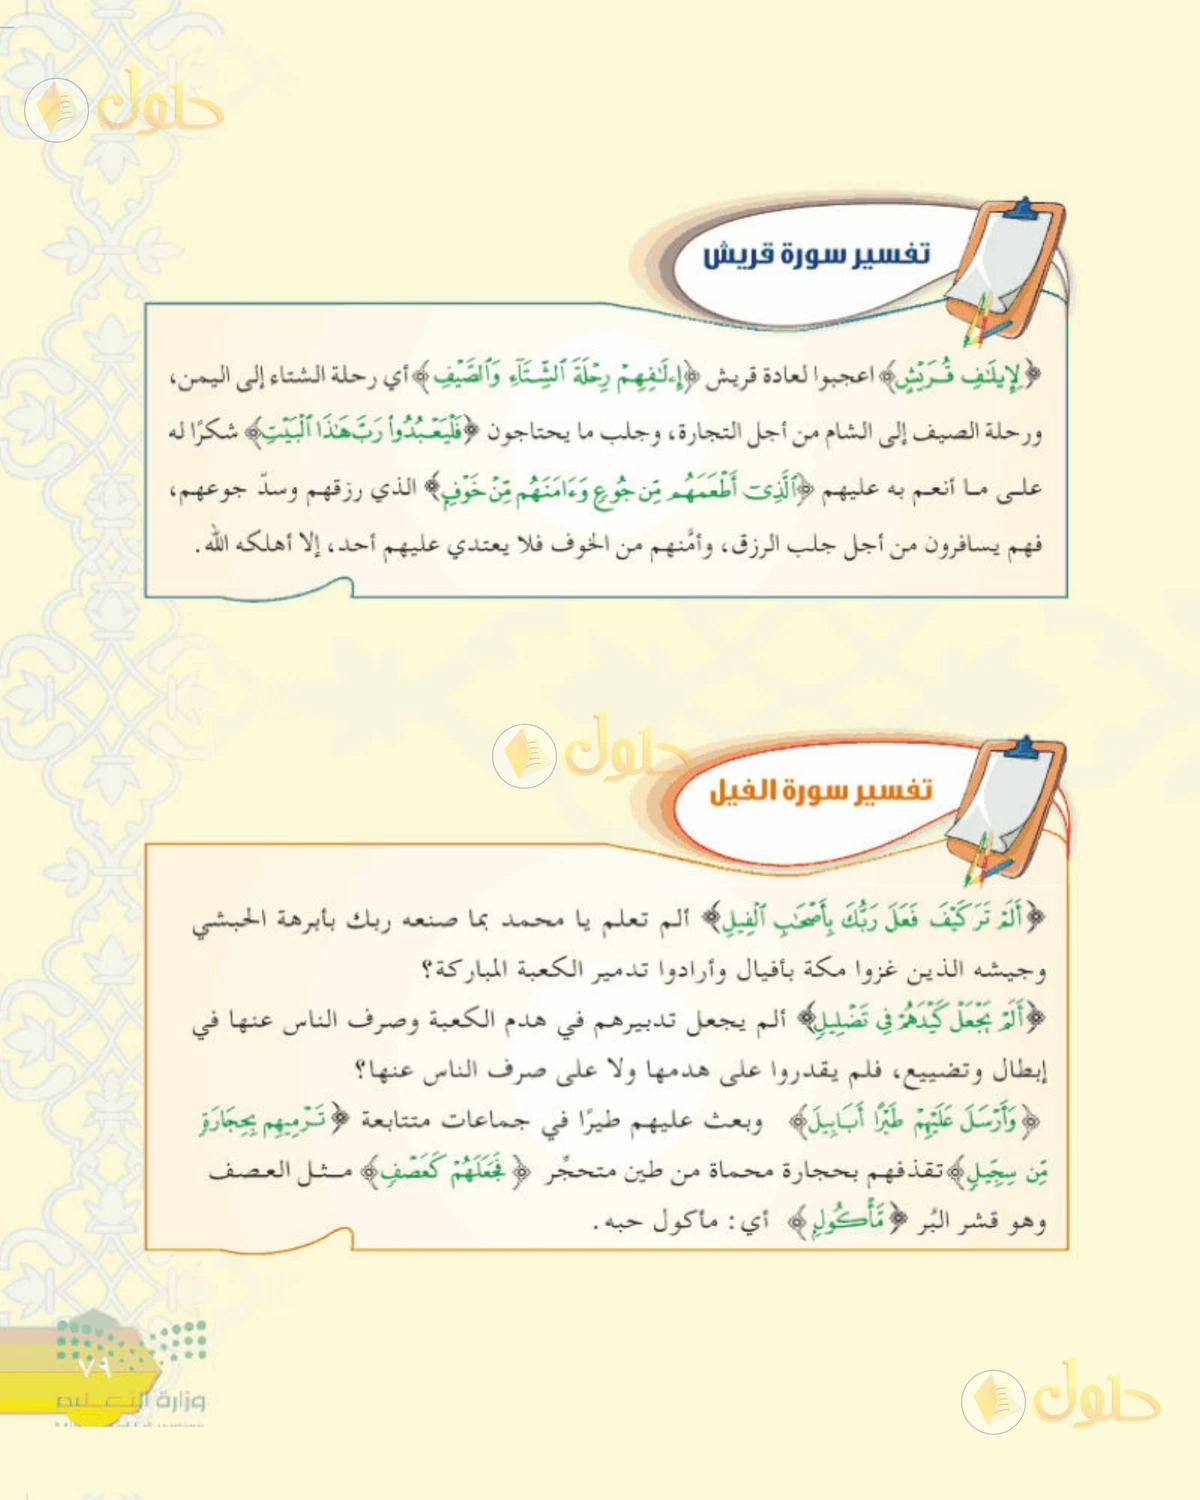 حلول
تفسير سورة قريش
﴿لِإِيلَٰفِ قُرَيْشٍ﴾ اعجبوا لعادة قريش ﴿إِۦلَٰفِهِمْ رِحْلَةَ ٱلشِّتَآءِ وَٱلصَّيْفِ﴾ أي رحلة الشتاء إلى اليمن،
ورحلة الصيف إلى الشام من أجل التجارة، وجلب ما يحتاجون ﴿فَلْيَعْبُدُوا۟ رَبَّ هَٰذَا ٱلْبَيْتِ﴾ شكرًا له
على ما أنعم به عليهم ﴿ٱلَّذِىٓ أَطْعَمَهُم مِّن جُوعٍ وَءَامَنَهُم مِّنْ خَوْفٍۭ﴾ الذي رزقهم وسدّ جوعهم،
فهم يسافرون من أجل جلب الرزق، وأمَّنهم من الخوف فلا يعتدي عليهم أحد، إلا أهلكه الله.
حلول
تفسير سورة الفيل
﴿أَلَمْ تَرَ كَيْفَ فَعَلَ رَبُّكَ بِأَصْحَٰبِ ٱلْفِيلِ﴾ ألم تعلم يا محمد بما صنعه ربك بأبرهة الحبشي
وجيشه الذين غزوا مكة بأفيال وأرادوا تدمير الكعبة المباركة؟
﴿أَلَمْ يَجْعَلْ كَيْدَهُمْ فِى تَضْلِيلٍ﴾ ألم يجعل تدبيرهم في هدم الكعبة وصرف الناس عنها في
إبطال وتضييع، فلم يقدروا على هدمها ولا على صرف الناس عنها؟
﴿وَأَرْسَلَ عَلَيْهِمْ طَيْرًا أَبَابِيلَ﴾ وبعث عليهم طيرًا في جماعات متتابعة ﴿تَرْمِيهِم بِحِجَارَةٍ
مِّن سِجِّيلٍ﴾ تقذفهم بحجارة محماة من طين متحجِّر ﴿فَجَعَلَهُمْ كَعَصْفٍ﴾ مثل العصف
وهو قشر البُر ﴿مَّأْكُولٍۭ﴾ أي: مأكول حبه.
٧٩
وزارة التعليم
حلول